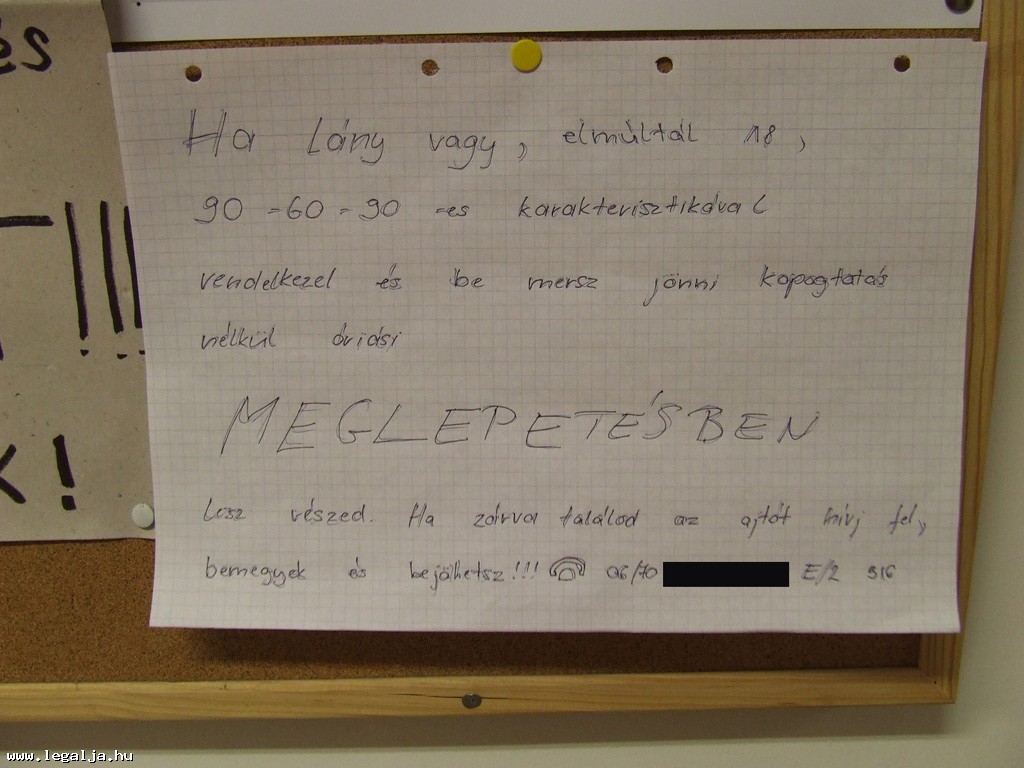 és
!!!
K!
Ha lány vagy, elmúltál 18,
90-60-90-es karakterisztikával
vendelkezel és be mersz jönni kopogtatás
nélkül óriási
MEGLEPETÉSBEN
lesz részed. Ha zárva találod az ajtót hívj fel,
bemegyek és bejöhetsz!!! 06/70 E/2 316
www.legalja.hu